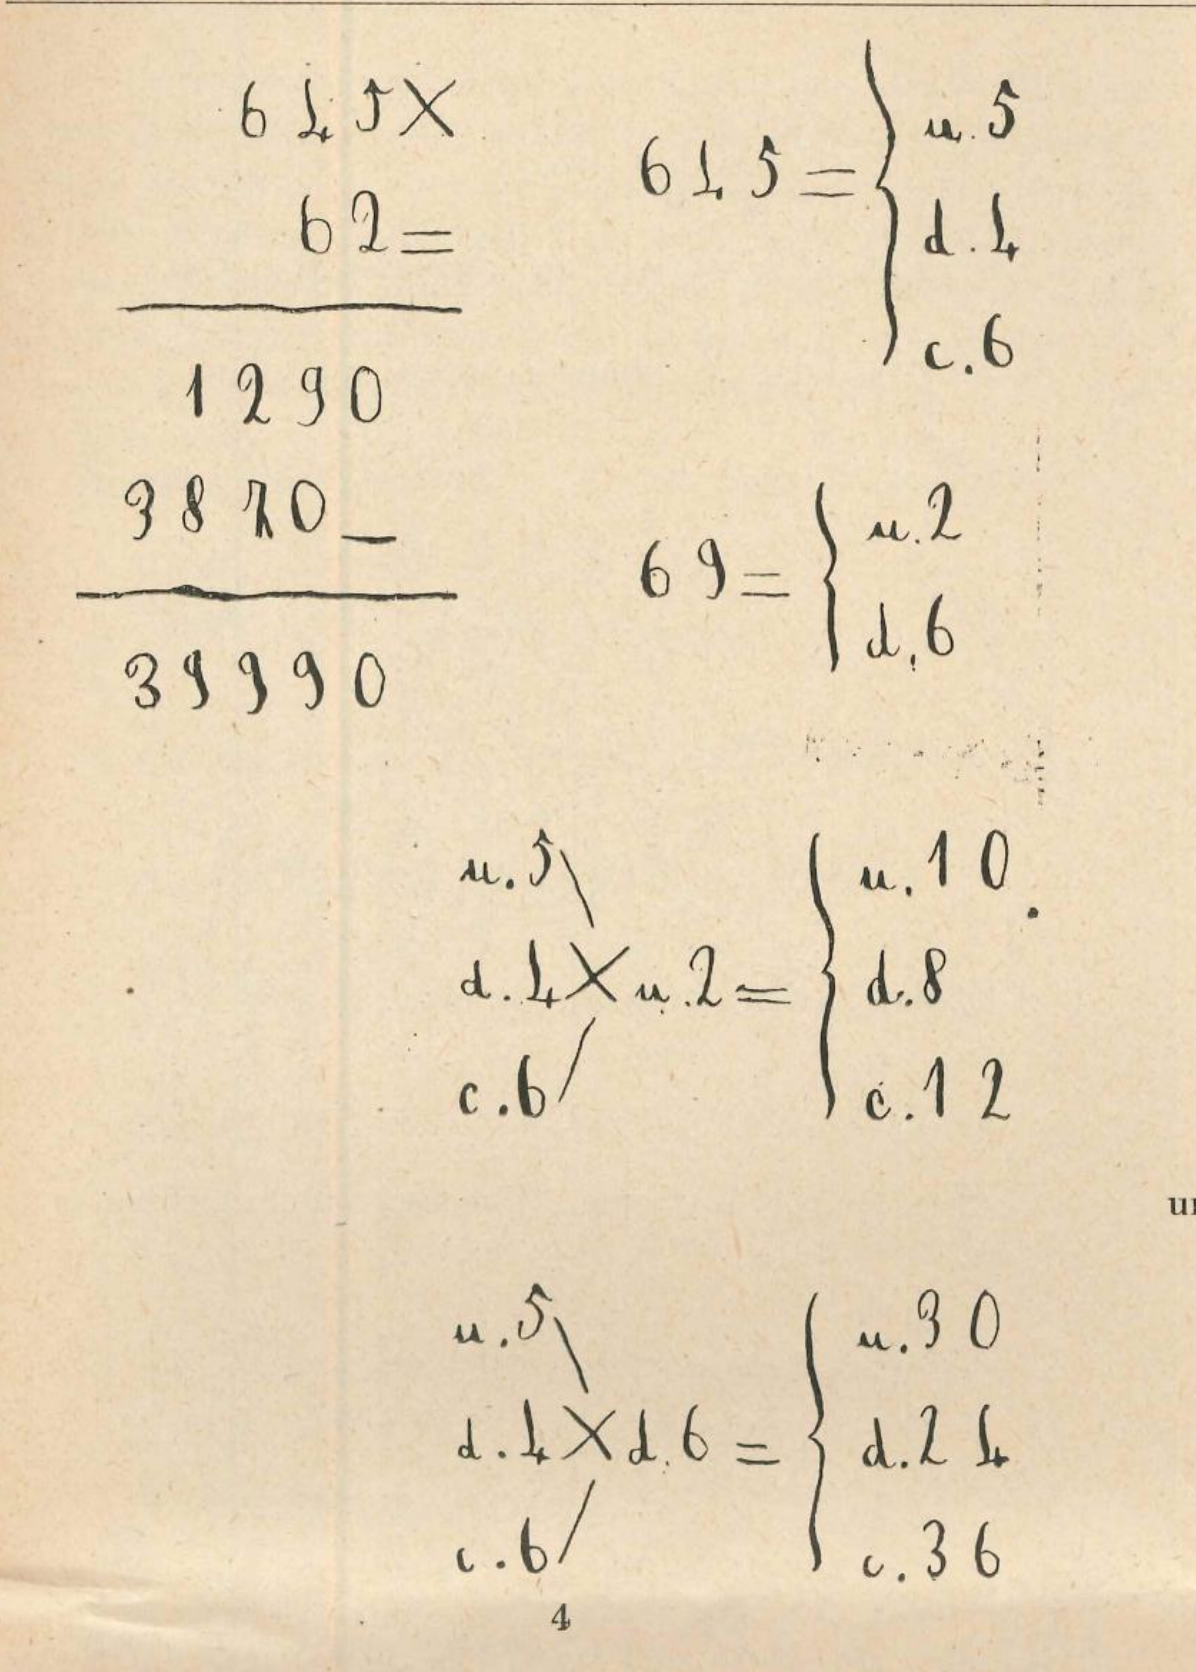 645×
62=
1290
3870_
39990
645=
u.5
d.4
c.6
69=
u.2
d.6
u.5
d.4×u.2=
c.6
u.10
d.8
c.12
u.5
d.4×d.6=
c.6
u.30
d.24
c.36
4